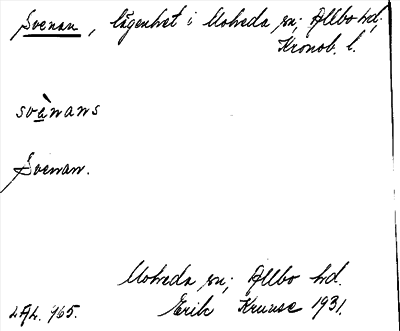 Svenan, lägenhet i Moheda sn; Allbo hd.
Kronob. l.
svènans
Svenan.
Moheda sn; Allbo hd.
LAL. 965. Erik Kruuse 1931.